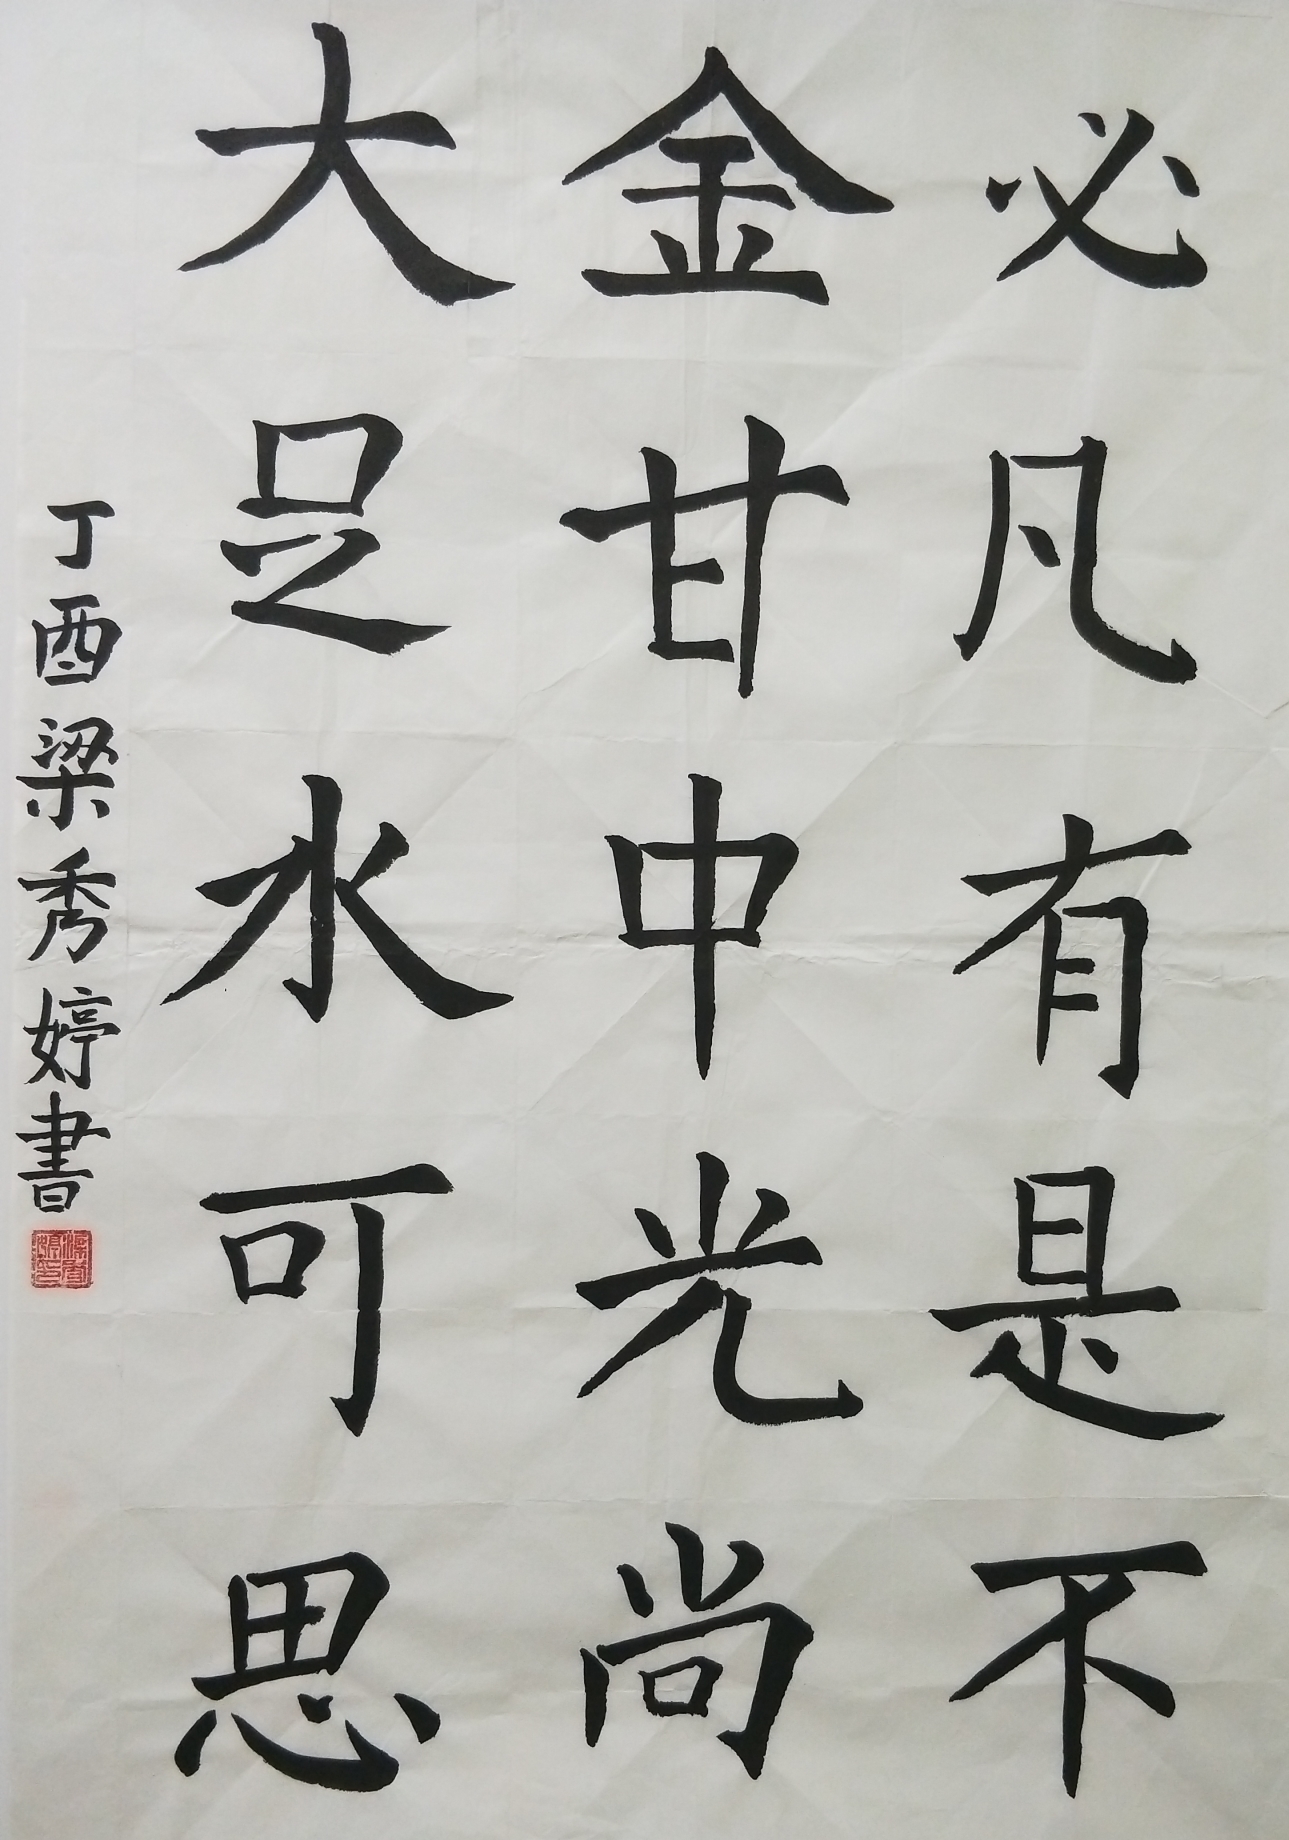 必凡有是不
金甘中光尚
大足水可思
丁酉梁秀婷書